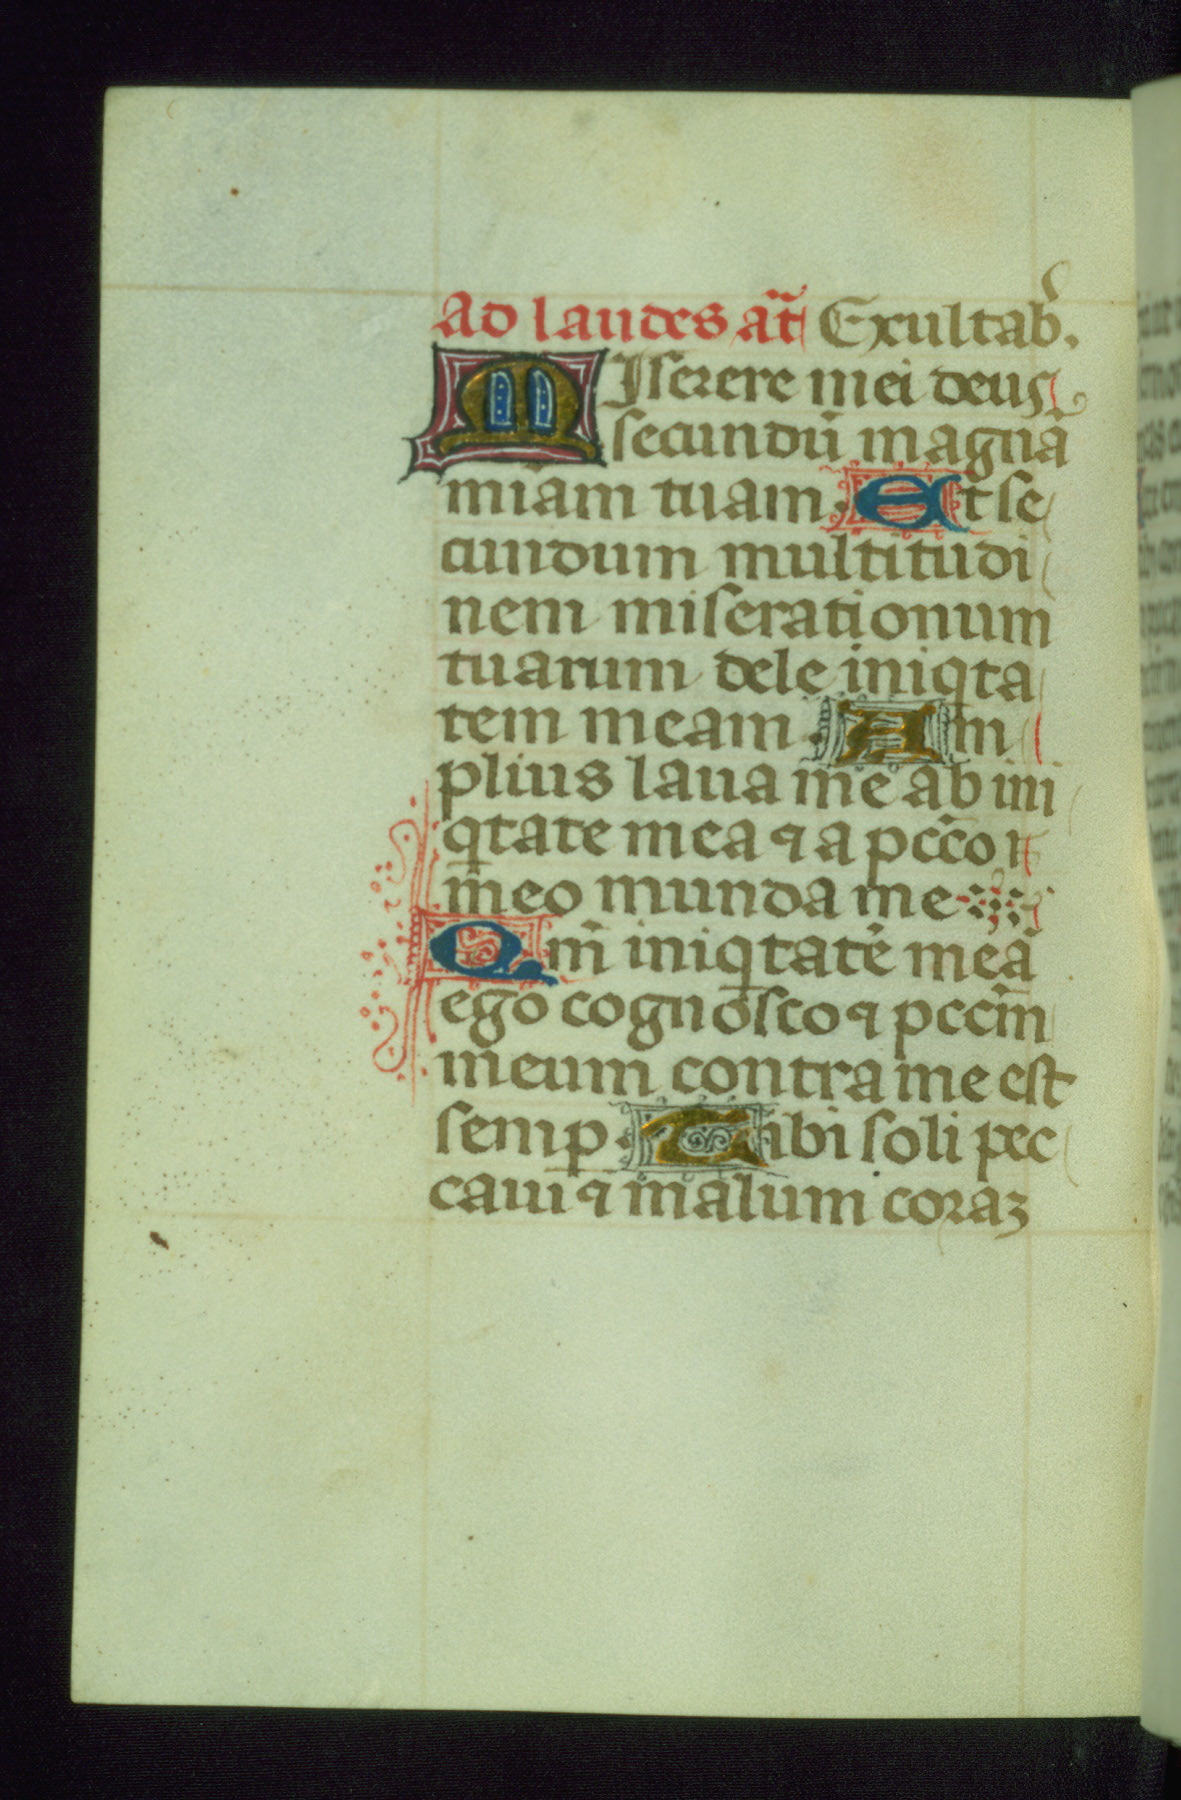 Ad laudes añt Exultab᷒.
MIserere mei deus
secundū magnā
miām tuam. Et se
cundum multitudi
nem miserationum
tuarum dele iniqta
tem meam. Am
plius laua me ab ini
qtate mea ⁊ a pcc̄o
meo munda me
Qm̄ iniqtatē meā
ego cognosco ⁊ pccm̄
meum contra me est
semp. Tibi soli pec
caui ⁊ malum coraz